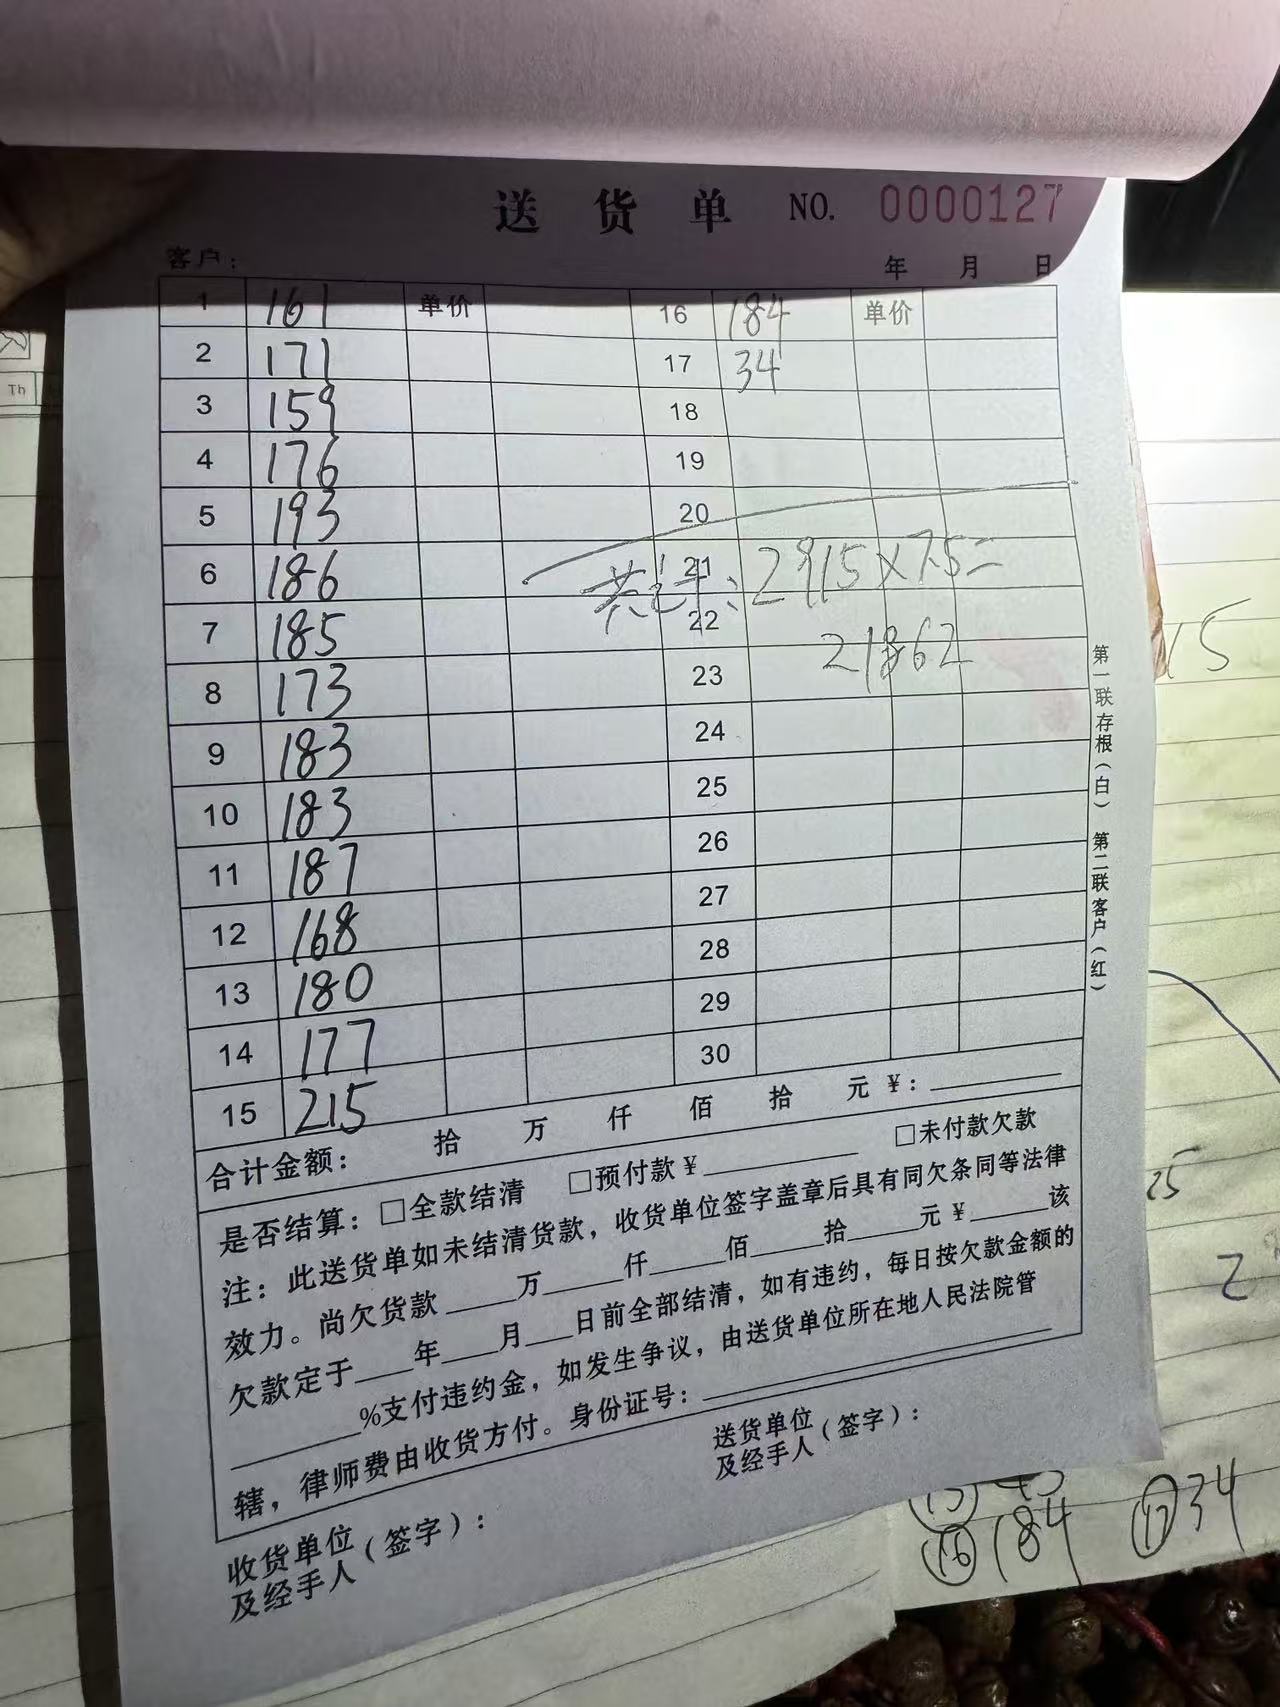 送货单 NO. 0000127
客户： 年 月 日
1 161 单价 16 184 单价
2 171 17 34
3 159 18
4 176 19
5 193 20
6 186 21 共计：2915×7.5=
7 185 22 21862
8 173 23
9 183 24
10 183 25
11 187 26
12 168 27
13 180 28
14 177 29
15 215 30
合计金额： 拾 万 仟 佰 拾 元 ¥：
是否结算：□全款结清 □预付款¥ □未付款欠款
注：此送货单如未结清货款，收货单位签字盖章后具有同欠条同等法律
效力。尚欠货款 万 仟 佰 拾 元¥ 该
欠款定于 年 月 日前全部结清，如有违约，每日按欠款金额的
%支付违约金，如发生争议，由送货单位所在地人民法院管
辖，律师费由收货方付。身份证号：
收货单位
及经手人（签字）：
送货单位
及经手人（签字）：
第一联存根（白） 第二联客户（红）
Th
15
25
2
⑯184 ⑰34